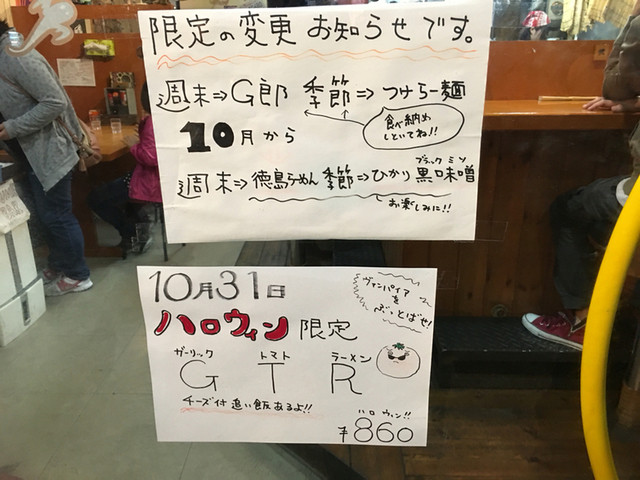 限定の変更 お知らせです。
週末⇒G郎 季節⇒つけらー麺
食べ納め
しといてね!!
10月から
ブラック ミソ
週末⇒徳島らぁめん 季節⇒ひかり黒味噌
お楽しみに!!
10月31日
ヴァンパイア
を
ぶっとばせ!
ハロウィン 限定
ガーリック トマト ラーメン
G T R
チーズ付 追い飯あるよ!!
ハロ ウィン!!
¥860